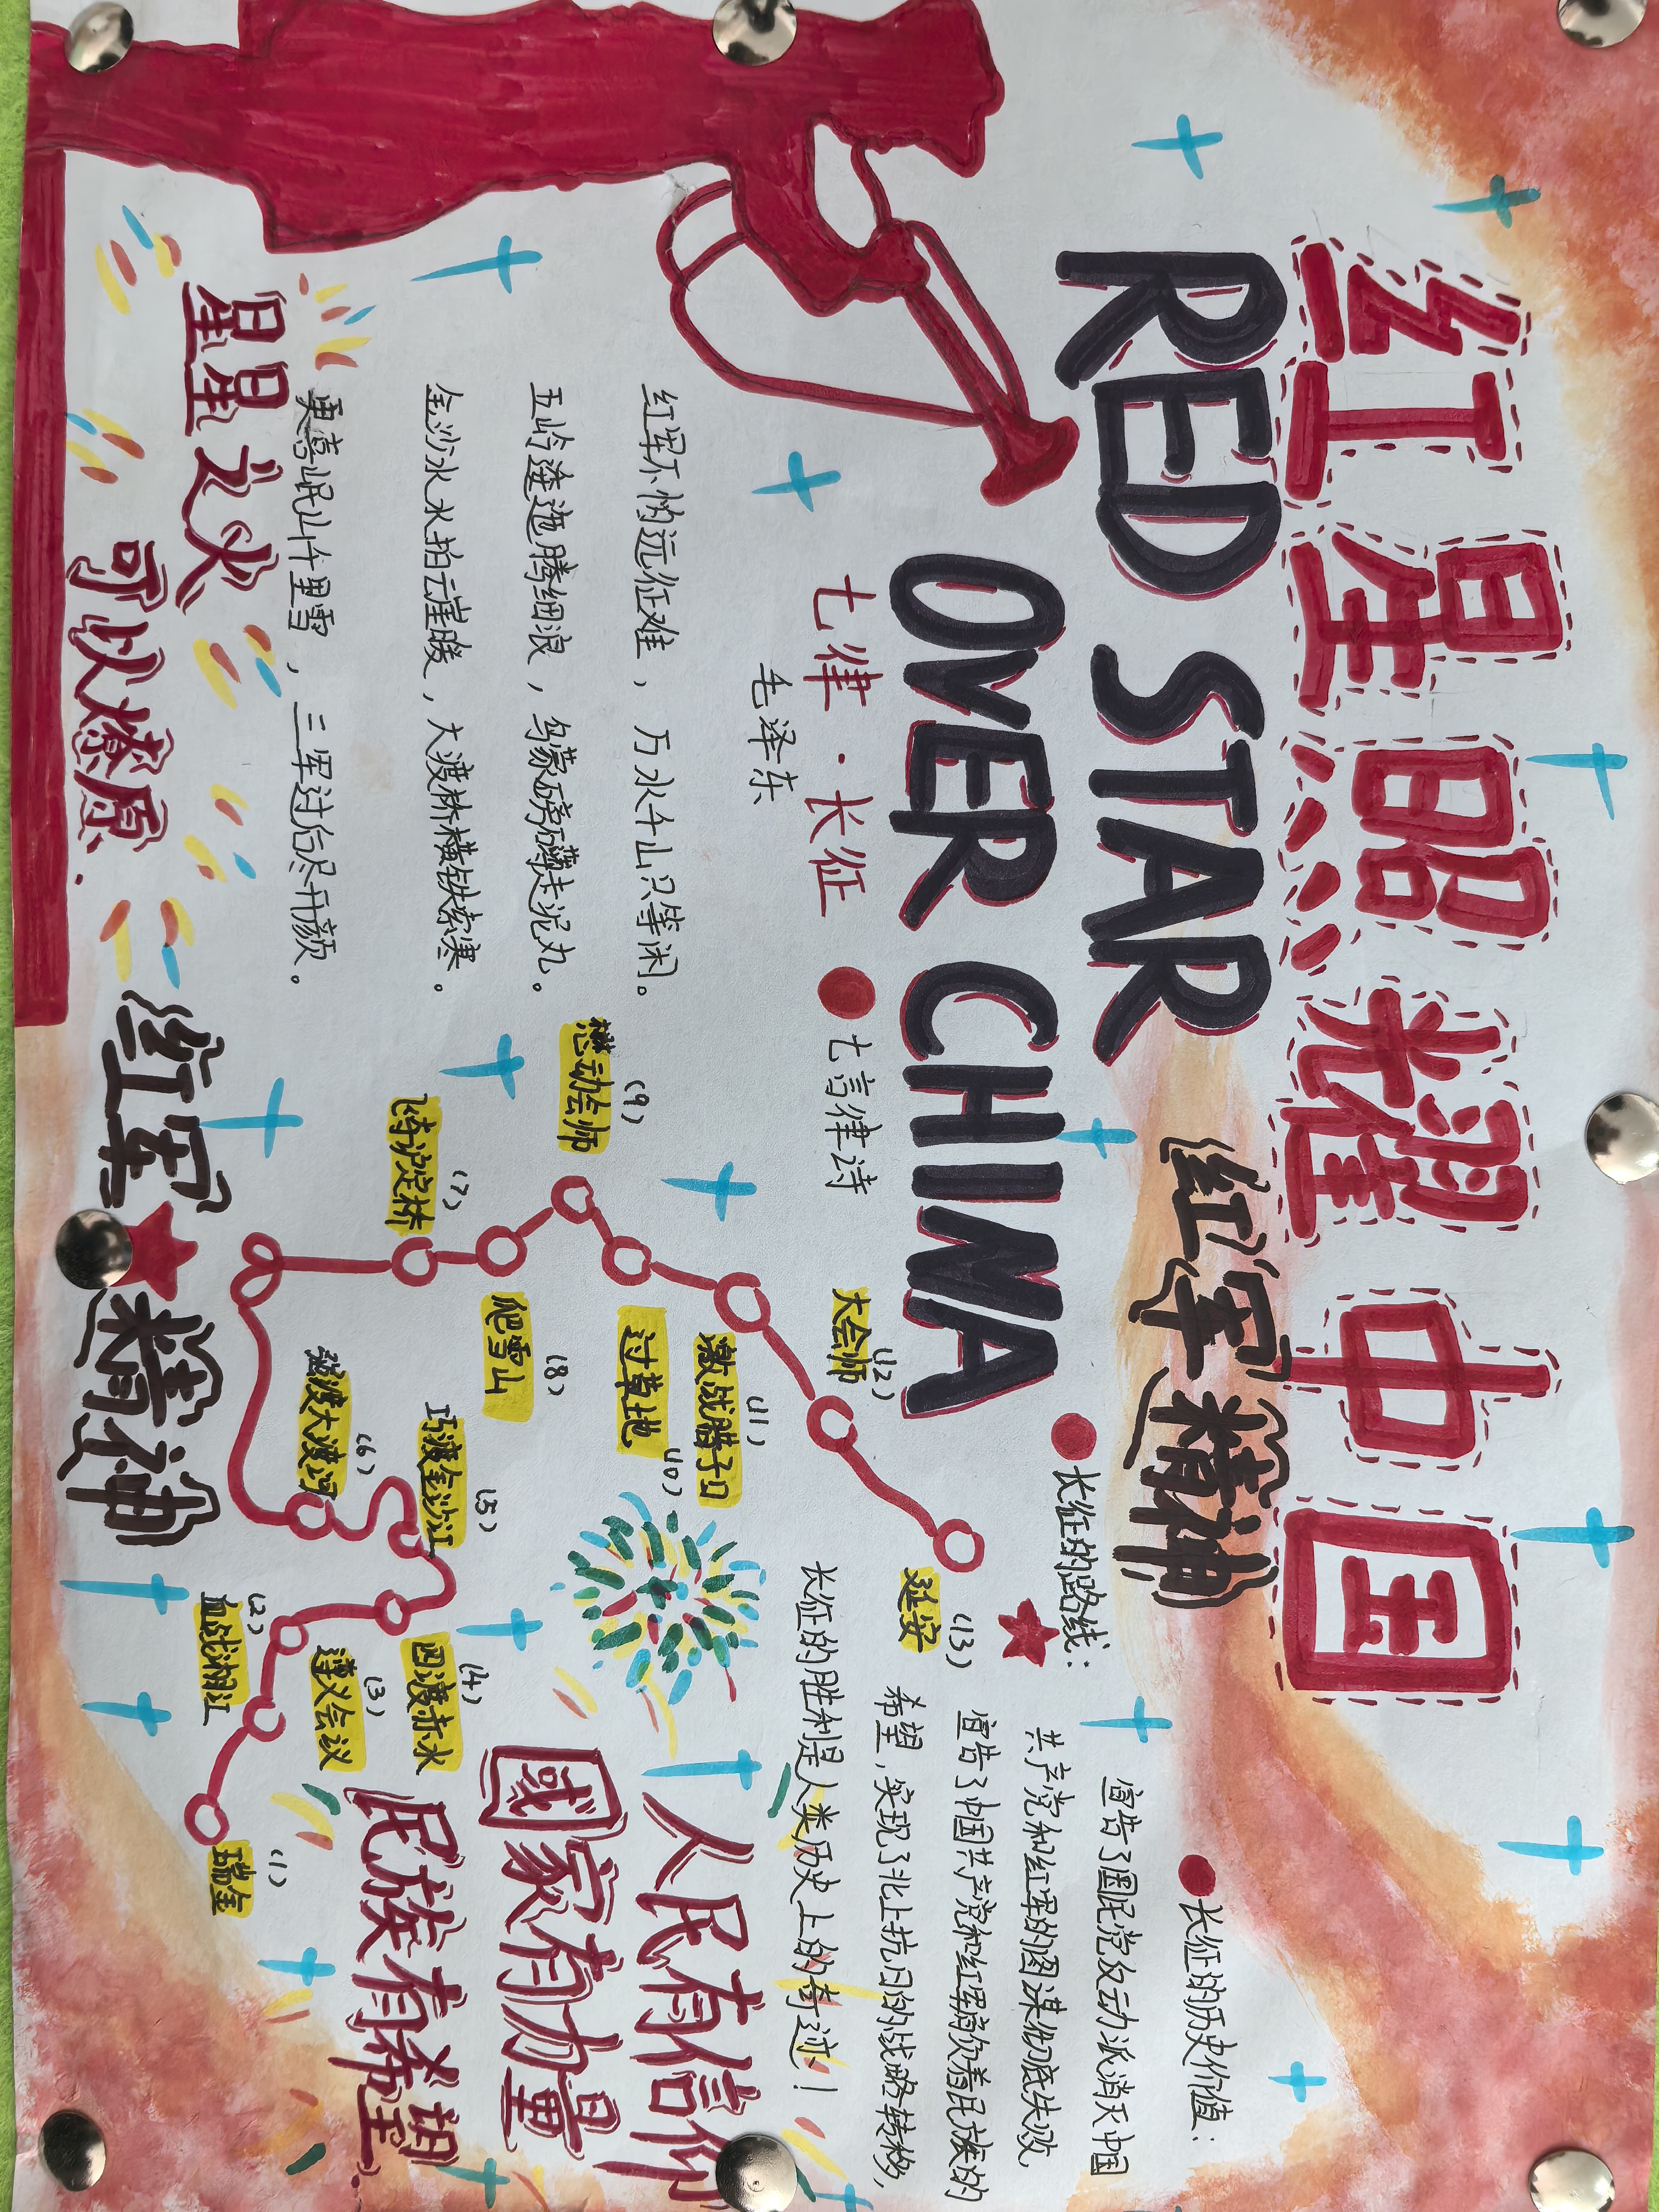 红星照耀中国
RED STAR
OVER CHINA
红军精神
七律·长征
毛泽东
红军不怕远征难，万水千山只等闲。
五岭逶迤腾细浪，乌蒙磅礴走泥丸。
金沙水水拍云崖暖，大渡桥横铁索寒。
更喜岷山千里雪，三军过后尽开颜。
七言律诗
长征的路线：
(13)
延安
(12)
大会师
(11)
激战腊子口
(10)
过草地
(9)
懋动会师
(8)
爬雪山
(7)
飞夺泸定桥
(6)
强渡大渡河
(5)
巧渡金沙江
(4)
四渡赤水
(3)
遵义会议
(2)
血战湘江
(1)
瑞金
长征的历史价值：
宣告了国民党反动派消灭中国
共产党和红军的图谋彻底失败
宣告了中国共产党和红军肩负着民族的
希望，实现了北上抗日的战略转移，
长征的胜利是人类历史上的奇迹！
人民有信仰
國家有力量
民族有希望
星星之火
可以燎原.
红军精神